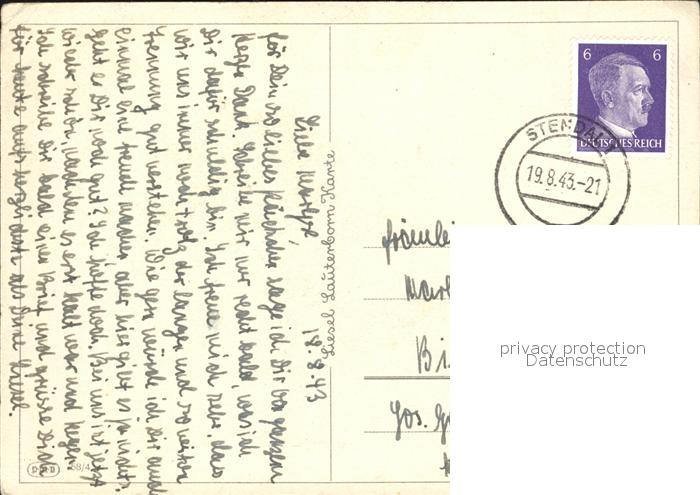 18.8.43
Liebe
für Dein so liebes Päckchen sage ich Dir von ganzem
Herzen Dank. Schreibe mir nur recht bald, was ich
Dir dafür schuldig bin. Ich freue mich sehr, dass
wir uns immer noch trotz der langen und so weiten
Trennung gut verstehen. Wie gern würde ich Dir auch
einmal eine Freude machen aber hier gibt es ja nichts.
Geht es Dir noch gut? Ich hoffe doch. Bei uns ist jetzt
wieder schön, nachdem es erst kalt war und Regen.
Ich schreibe Dir bald einen Brief und grüsse Dich
für heute aufs herzlichste als Deine Liesel.
Liesel Lauterborn Karte
6 6
DEUTSCHES REICH
STENDAL
19.8.43.-21
Fräulei
Marl
Bi
Jos. G
privacy protection
Datenschutz
58/4